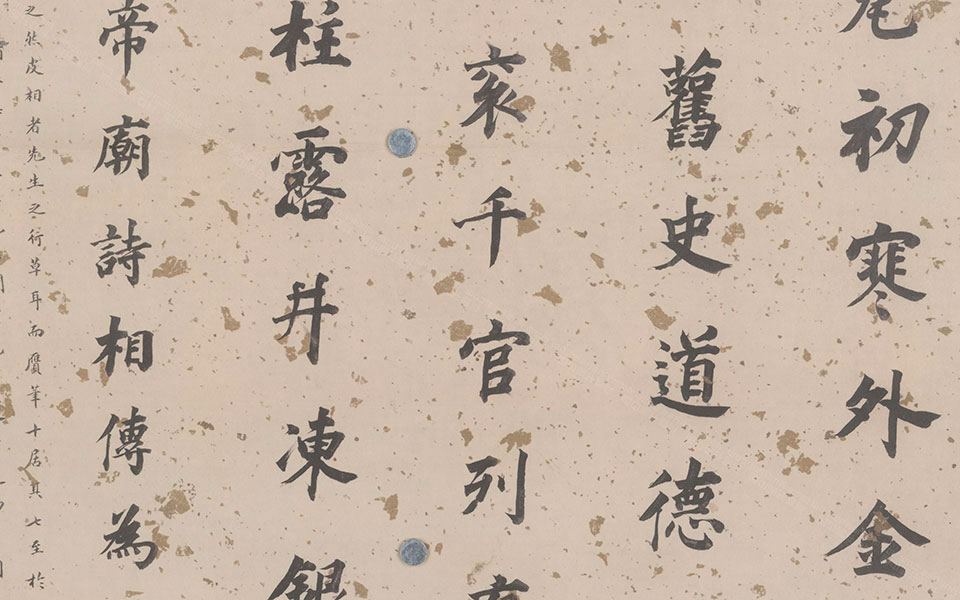 初寒外金
舊史道德
袞千官列
柱露井凍銀
帝廟詩相傳為
之然皮相者先生之行草耳而贗筆十居其七至於